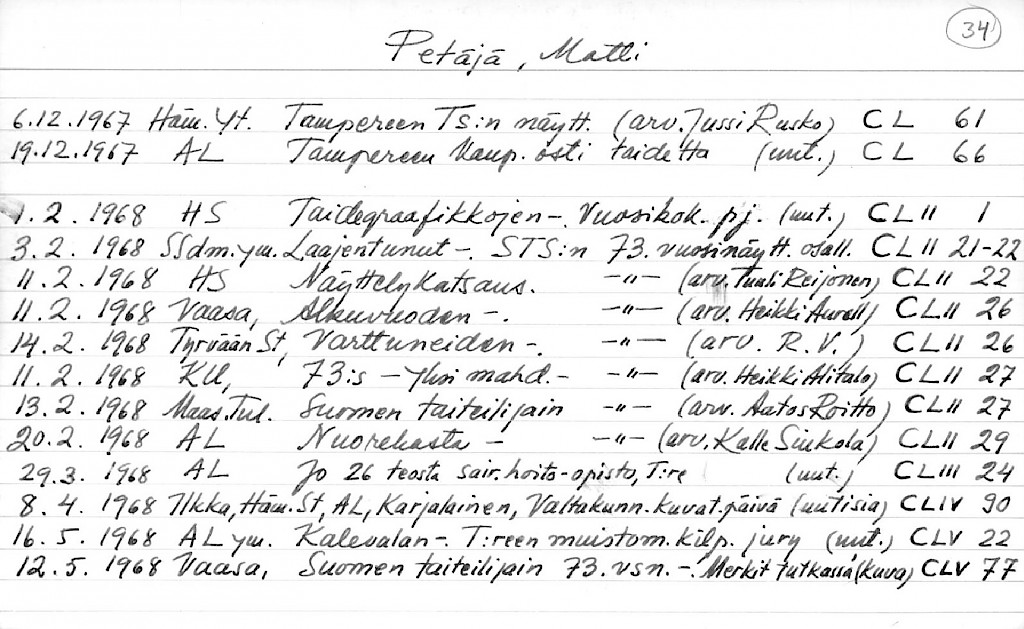 34
Petäjä, Matti
6.12.1967 Häm.Yt. Tampereen TS:n näytt. (arv. Jussi Rusko) CL 61
19.12.1967 AL Tampereen Kaup. osti taidetta (uut.) CL 66
1.2.1968 HS Taidegraafikkojen -. Vuosikok. pj. (uut.) CLII 1
3.2.1968 SSdm.ym. Laajentunut -. STS:n 73. vuosinäytt. osall. CLII 21-22
11.2.1968 HS Näyttelykatsaus. -"- (arv. Tuuli Reijonen) CLII 22
11.2.1968 Vaasa, Alkuvuoden -. -"- (arv. Heikki Aurell) CLII 26
14.2.1968 Tyrvään St, Varttuneiden -. -"- (arv. R.V.) CLII 26
11.2.1968 KU, 73:s - yksi mahd. - -"- (arv. Heikki Alitalo) CLII 27
13.2.1968 Maas.Tul. Suomen taiteilijain -"- (arv. Aatos Roitto) CLII 27
20.2.1968 AL Nuorekasta - -"- (arv. Kalle Siukola) CLII 29
29.3.1968 AL Jo 26 teosta sair.hoito-opisto, T:re (uut.) CLIII 24
8.4.1968 Ilkka, Häm.St, AL, Karjalainen, Valtakunn.kuvat.päivä (uutisia) CLIV 90
16.5.1968 AL ym. Kalevalan -. T:reen muistom.kilp. jury (uut.) CLV 22
12.5.1968 Vaasa, Suomen taiteilijain 73.vsn. -. Merkit tutkassa (kuva) CLV 77